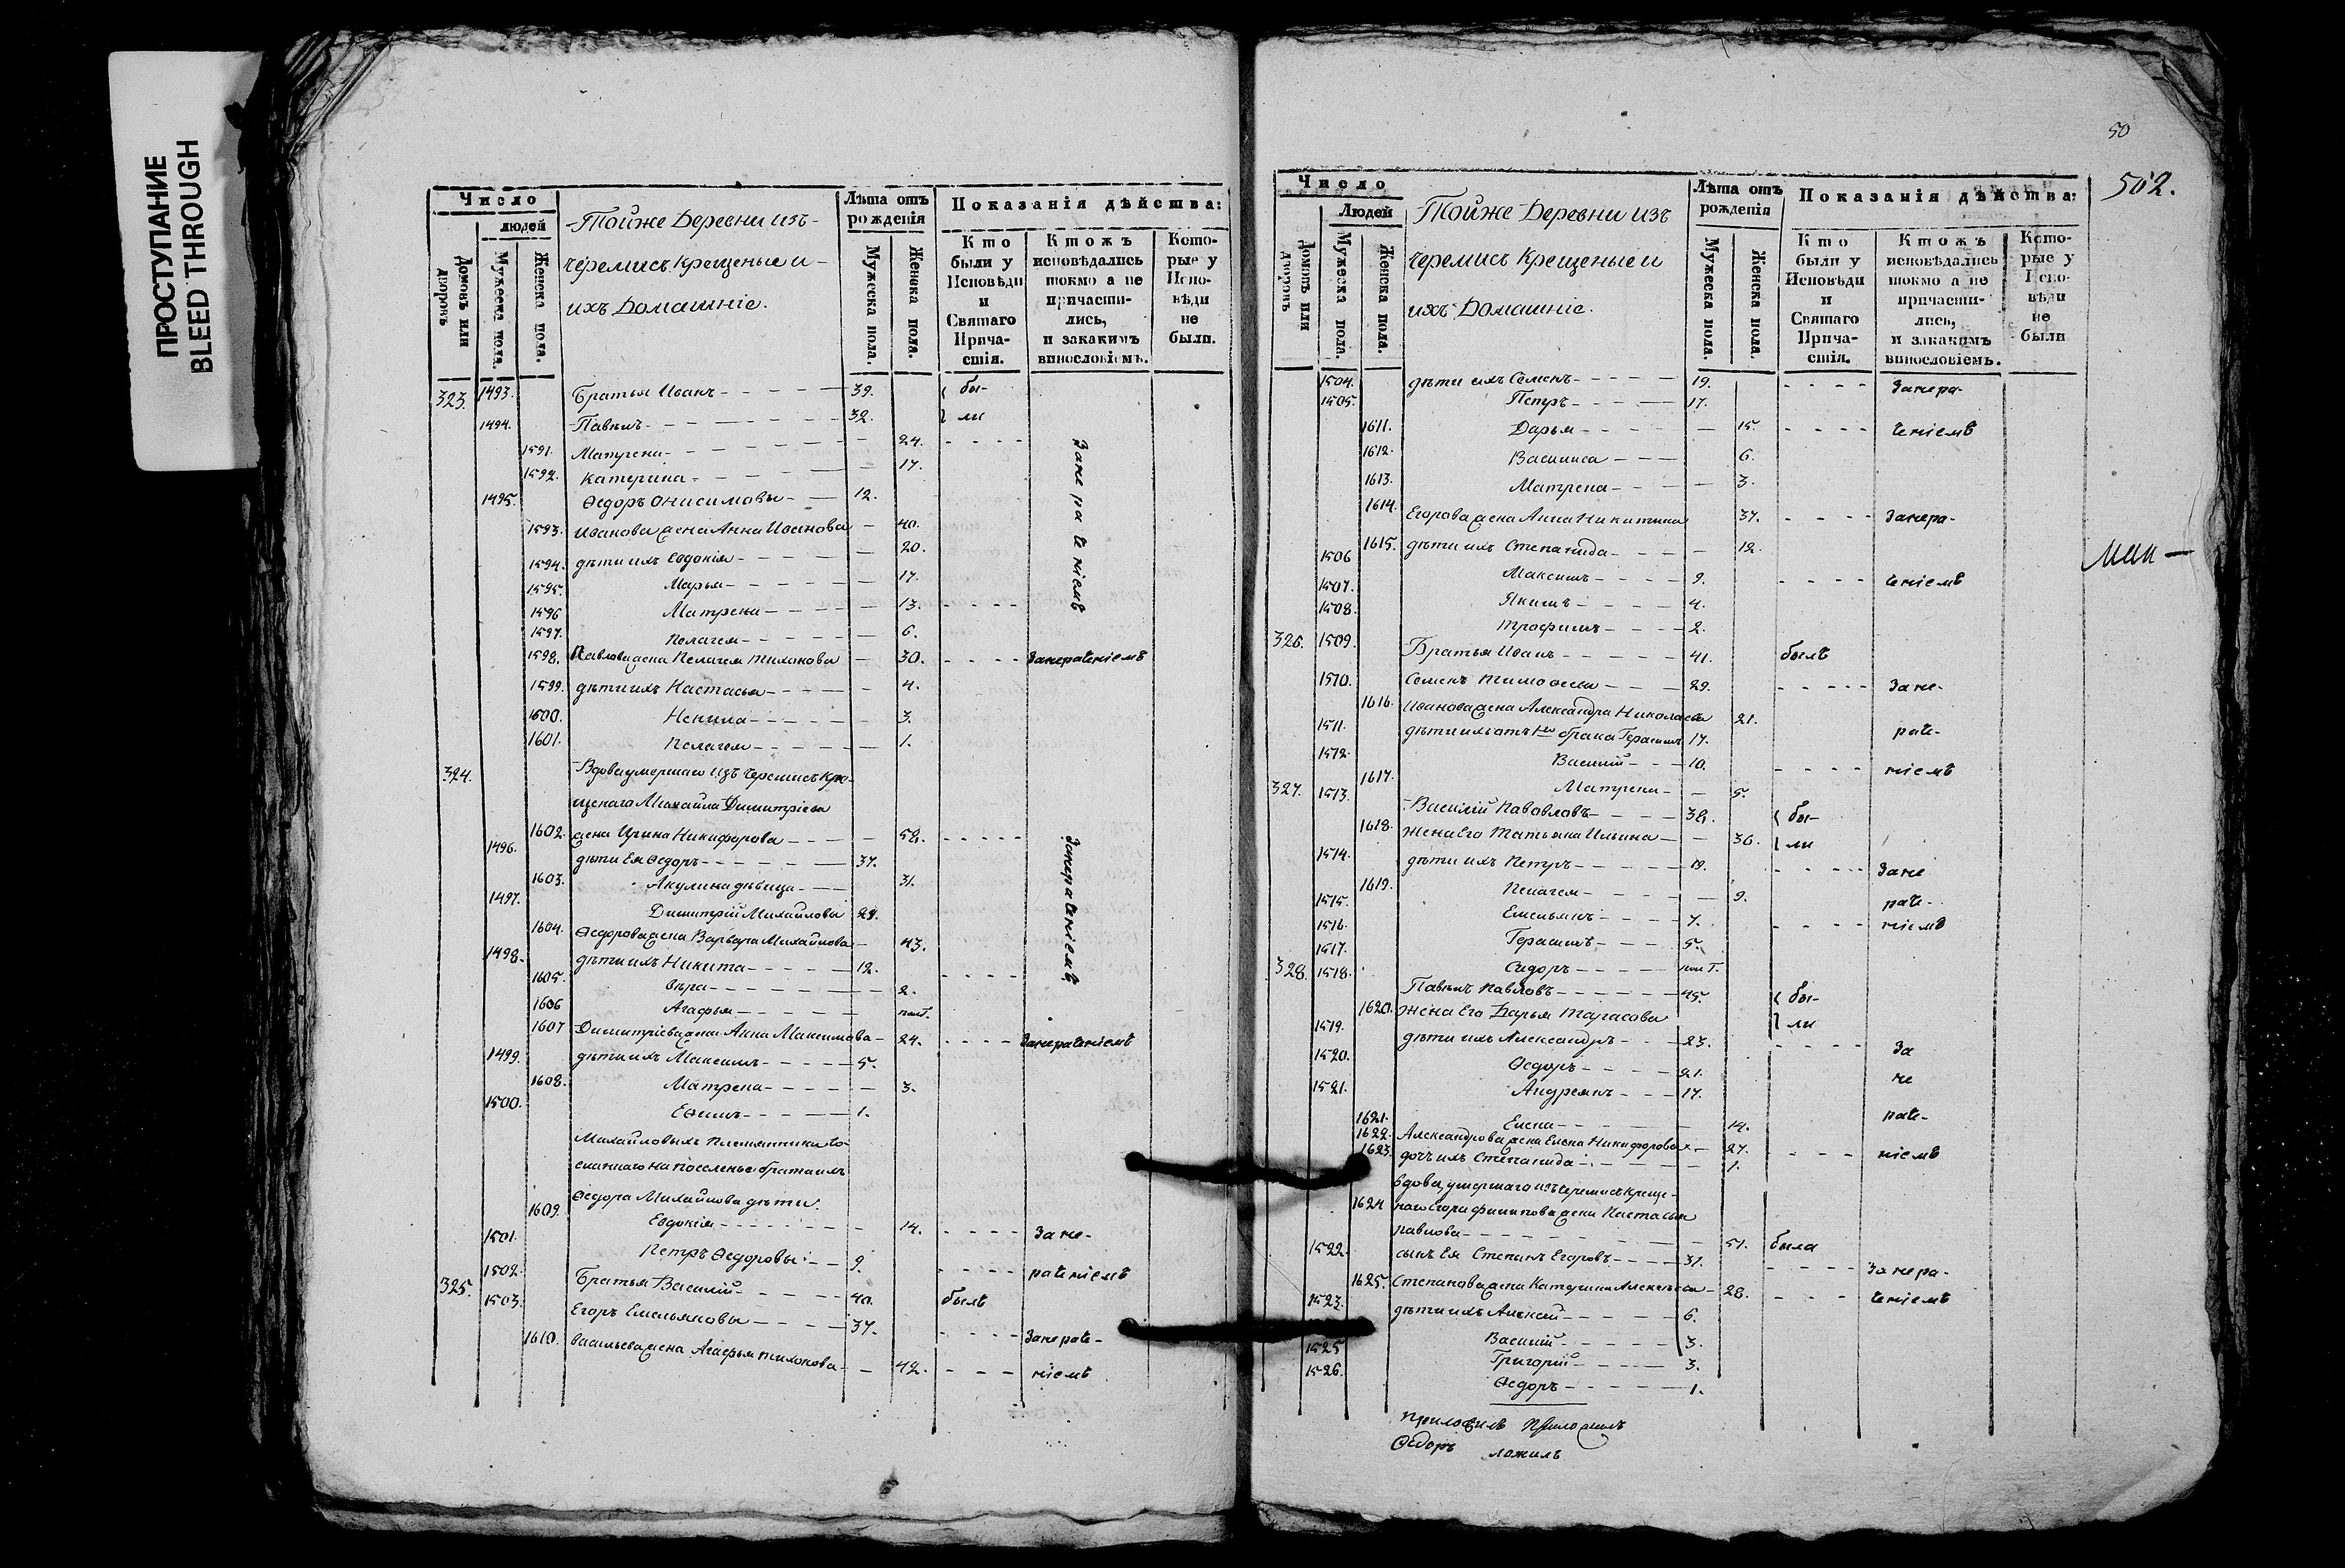 ПРОСТУПАНИЕ
BLEED THROUGH
Число
людей
Домовъ или дворовъ
Мужеска пола.
Женска пола.
Тойже Деревни изъ
черемисъ Крещеные и
ихъ Домашніе.
Лѣта отъ рожденія
Мужеска пола.
Женска пола.
Показанія дѣйства:
Кто были у Исповѣди и Святаго Причастія.
Ктожъ исповѣдались токмо а не причастились, и закакимъ винословіемъ.
Которые у Исповѣди не были.
323. 1493. Братья Иванъ 39. бы-
1494. Павелъ 32. ли
1591. Матрена 24.
1592. Катерина 17.
1495. Ѳедоръ Онисимовы 12.
1593. Иванова жена Анна Иванова 40.
1594. дѣти ихъ Евдокія 20.
1595. Марья 17.
1596 Матрена 13.
1597. Пелагея 6.
Занераченіемъ
1598. Павлова жена Пелагея Тихонова 30. Занераченіемъ
1599. дѣти ихъ Настасья 4.
1600. Ненила 3.
1601. Пелагея 1.
324. Вдова умершаго изъ черемисъ Кре-
щенаго Михайла Димитріева
1602. жена Ирина Никифорова 58.
1496. дѣти Ея Ѳедоръ 37.
1603. Акулина дѣвица 31.
1497. Димитрій Михайловы 29.
1604. Ѳедорова жена Варвара Михайлова 43.
1498. дѣти ихъ Никита 12.
1605. Вѣра 2.
1606 Агафья полг.
Занераченіемъ
1607 Димитріева жена Анна Максимова 24. Занераченіемъ
1499. дѣти ихъ Максимъ 5.
1608. Матрена 3.
1500. Ефимъ 1.
Михайловыхъ племянники со-
сланнаго на поселенье брата ихъ
Ѳедора Михайлова дѣти.
1609. Евдокія 14. Зане-
1501. Петръ Ѳедоровы 9. раченіемъ
325. 1502. Братья Василій 40. былъ
1503. Егоръ Емельяновы 37. Занераче-
1610. Васильева жена Агафья Тихонова 42. ніемъ
50
502.
Число
Людей
Домовъ или дворовъ
Мужеска пола.
Женска пола.
Тойже Деревни изъ
черемисъ Крещеные и
ихъ Домашніе.
Лѣта отъ рожденія
Мужеска пола.
Женска пола.
Показанія дѣйства:
Кто были у Исповѣди и Святаго Причастія.
Ктожъ исповѣдались токмо а не причастились, и закакимъ винословіемъ.
Которые у Исповѣди не были
1504. дѣти ихъ Семенъ 19. Занера-
1505. Петръ 17.
1611. Дарья 15. ченіемъ
1612. Василиса 6.
1613. Матрена 3.
1614. Егорова жена Анна Никитина 37. Занера-
1615. дѣти ихъ Степанида 12.
1506 Максимъ 9. ченіемъ
1507. Якимъ 4.
1508. Трофимъ 2.
326. 1509. Братья Иванъ 41. былъ
1510. Семенъ Тимоѳеевы 29. Зане-
1616. Иванова жена Александра Николаева 21.
1511. дѣти ихъ отъ 1го брака Герасимъ 17. раче-
1512. Василий 10. ніемъ
1617. Матрена 5.
327. 1513. Василій Павовловъ 38. бы-
1618. Жена Его Татьяна Ильина 36. ли
1514. дѣти ихъ Петръ 19. Зане
1619. Пелагея 9. раче-
1515. Емельянъ 7. ніемъ
1516. Герасимъ 5.
1517. Сидоръ пол Г.
328. 1518. Павелъ Павловъ 45. бы-
1620. Жена Его Дарья Тарасова ли
1519. дѣти ихъ Александръ 23. За
1520. Ѳедоръ 21. не
1521. Андреянъ 17.
1621. Елена 14. раче-
1622. Александрова жена Елена Никифорова 27. ніемъ
1623. дочь ихъ Степанида 1.
Вдова, умершаго изъ черемисъ Креще-
1624 наго Егора Филипова жена Настасья
Павлова 51. была
1522. сынъ Ея Степанъ Егоровъ 31. Занера-
1625. Степанова жена Катерина Алексѣева 28. ченіемъ
1523. дѣти ихъ Алексѣй 6.
Василий 3.
1525 Григорій 3.
1526. Ѳедоръ 1.
приложилъ приложилъ
Ѳедоръ ложилъ